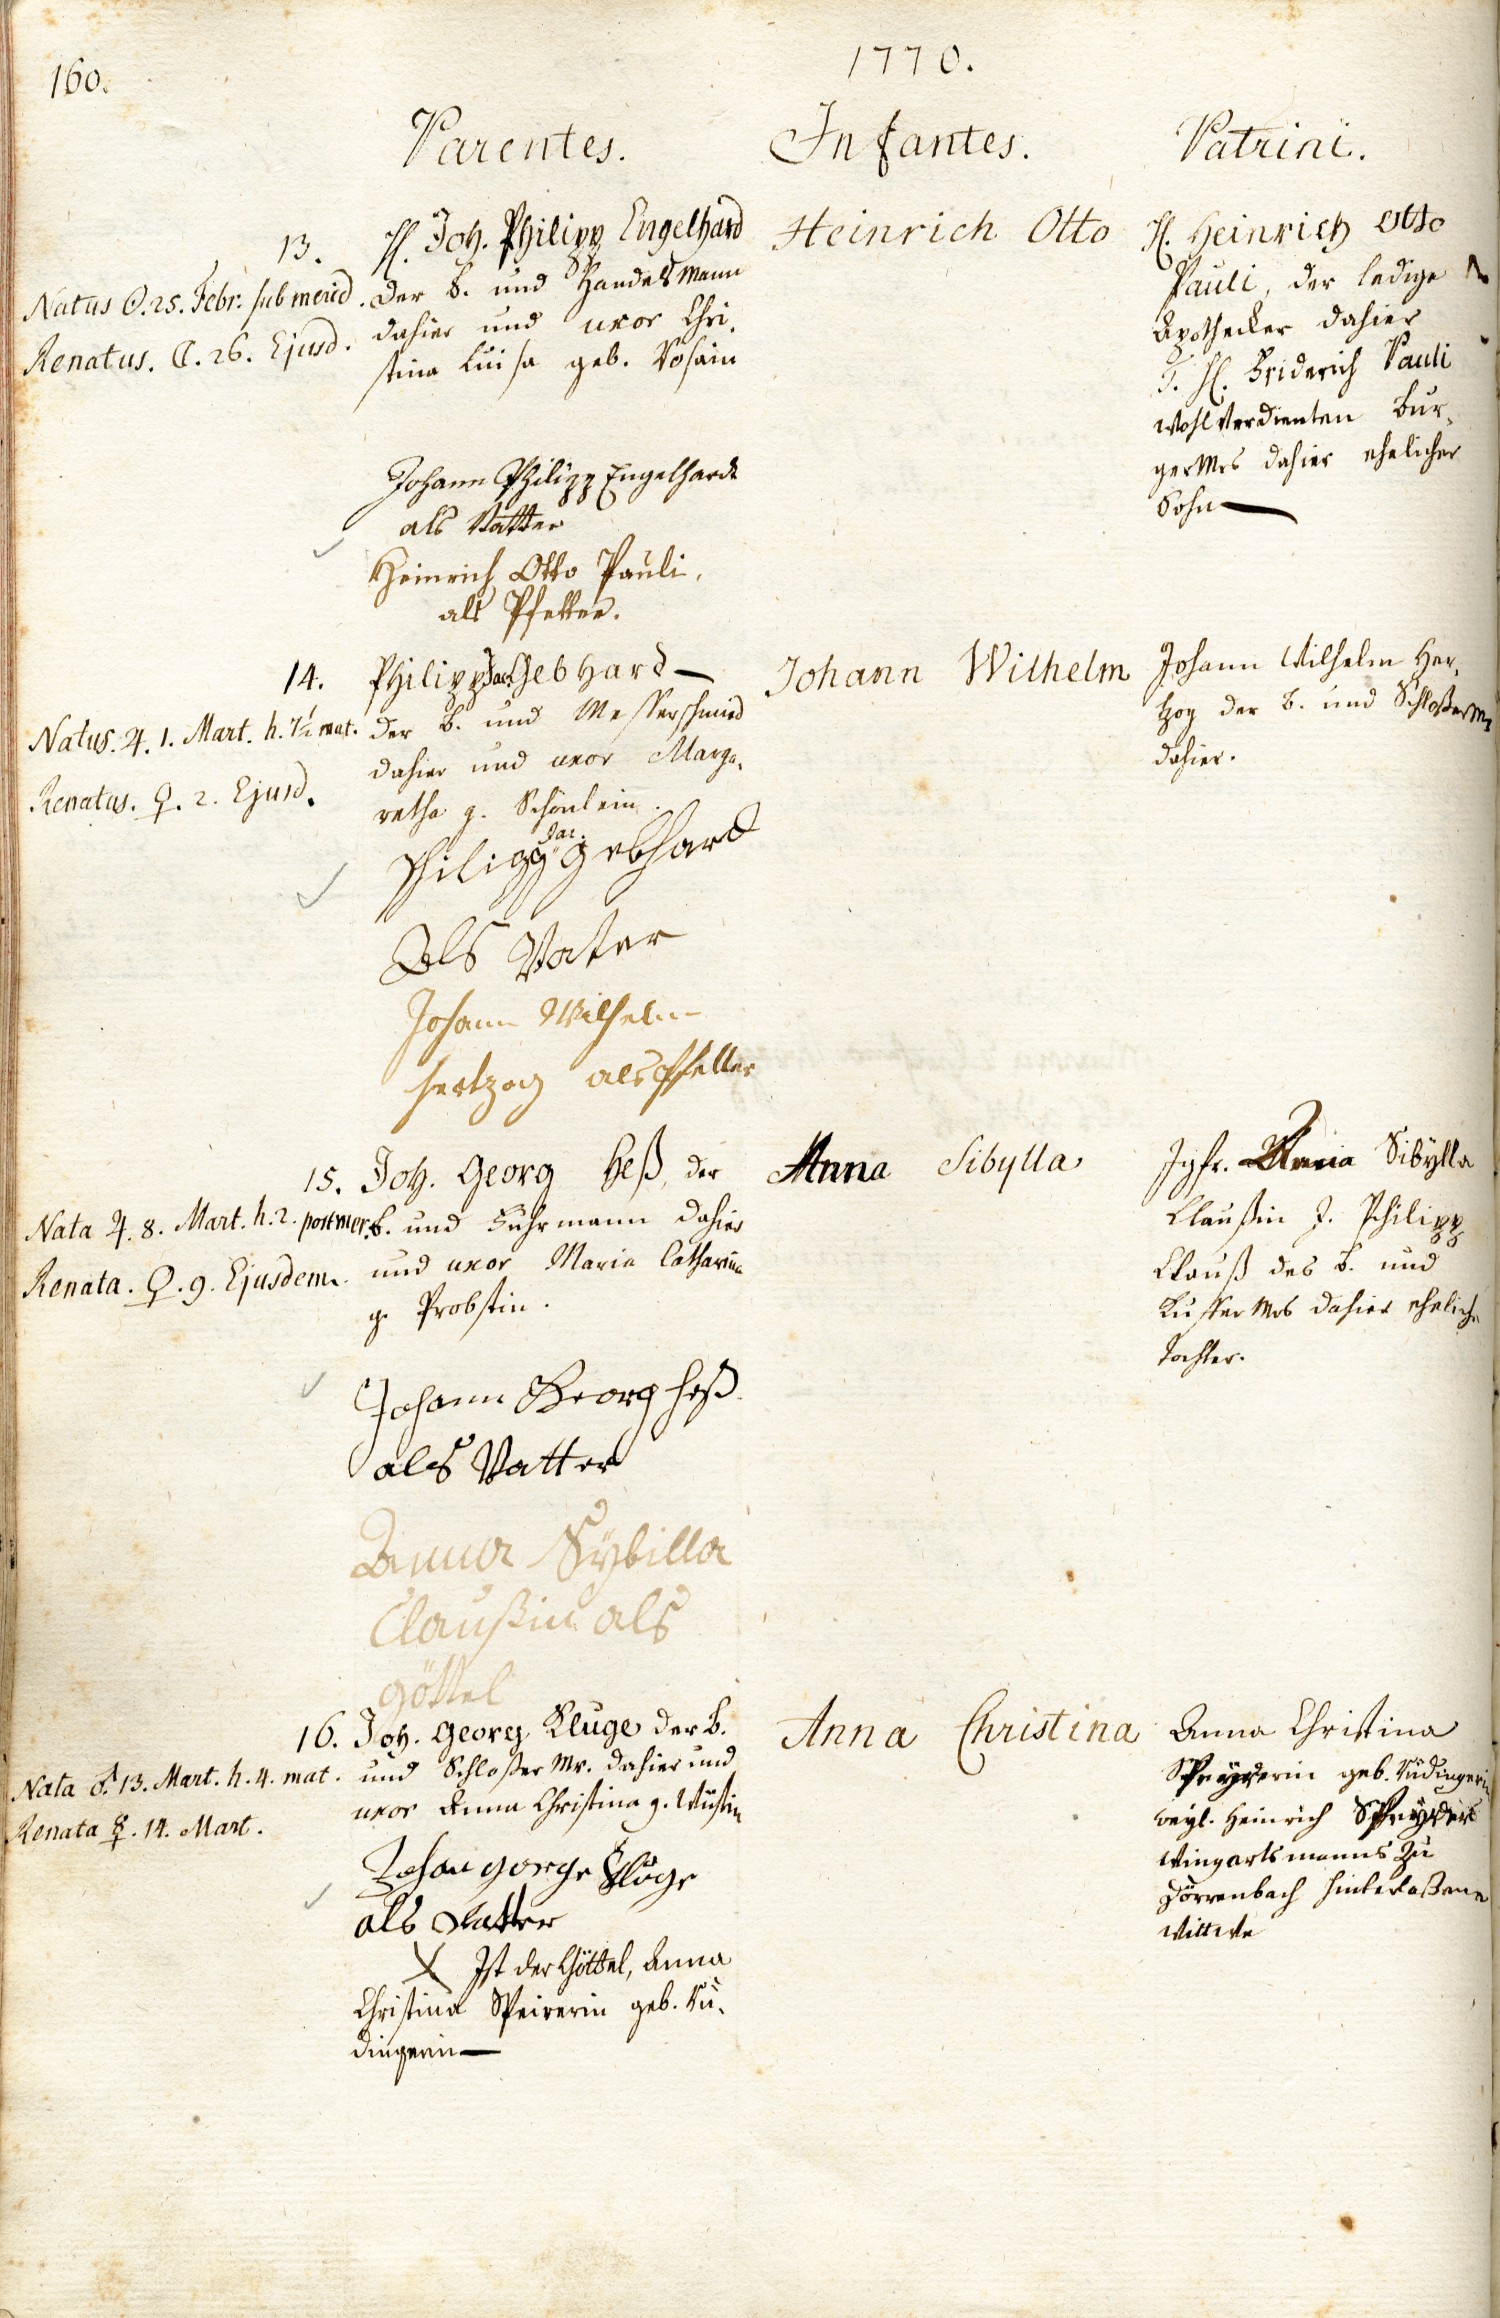 160.
1770.
Parentes.
Infantes.
Patrini.
13.
Natus ☉. 25. Febr. sub merid.
Renatus. ☾. 26. Ejusd.
H. Joh. Philipp Engelhard
der b. und Handelsmann
dahier und uxor Chri,
stina Luisa geb. Rosain
Johann Philipp Engelhardt
als Vatter
Heinrich Otto Pauli,
als Pfetter.
Heinrich Otto
H. Heinrich Otto
Pauli, der ledige
Apothecker dahier
H. Friderich Pauli
wohlverdienten Bur,
germrs dahier ehelicher
Sohn
14.
Natus. ♃. 1. Mart. h. 7½ mat.
Renatus. ♀. 2. Ejusd.
Philipp Jac. Gebhard
der b. und Messerschmied
dahier und uxor Marga,
retha g. Schönlein.
Philipp Jac. gebhard
Als Vater
Johann Wilhelm
hertzog als Pfetter
Johann Wilhelm
Johann Wilhelm Her,
tzog der b. und Schloßermr
dahier.
15.
Nata ♃. 8. Mart. h. 2. post mer.
Renata. ♀. 9. Ejusdem.
Joh. Georg Heß, der
b. und Fuhrmann dahier
und uxor Maria Catharina
g. Probstin.
Johann Georg heß.
als Vatter
Anna Sybilla
Claußin als
göttel
Anna Sibylla
Jgfr. Sibÿlla
Claußin J. Philipp
Clauß des b. und
Kuffer Mrs dahier eheliche
Tochter.
16.
Nata ♂. 13. Mart. h. 4. mat.
Renata ☿. 14. Mart.
Joh. Georg Kluge der b.
und Schloßer Mr. dahier und
uxor Anna Christina g. Wüstin
Johan gorge Kloge
als Vatter
X Ist der Göttel, Anna
Christina Speirerin geb. Rü,
dingerin
Anna Christina
Anna Christina
Speyrerin geb. Rüdingerin
weyl. Heinrich Speyrers
Wingartsmanns zu
Dörrenbach hinterlaßene
Wittwe